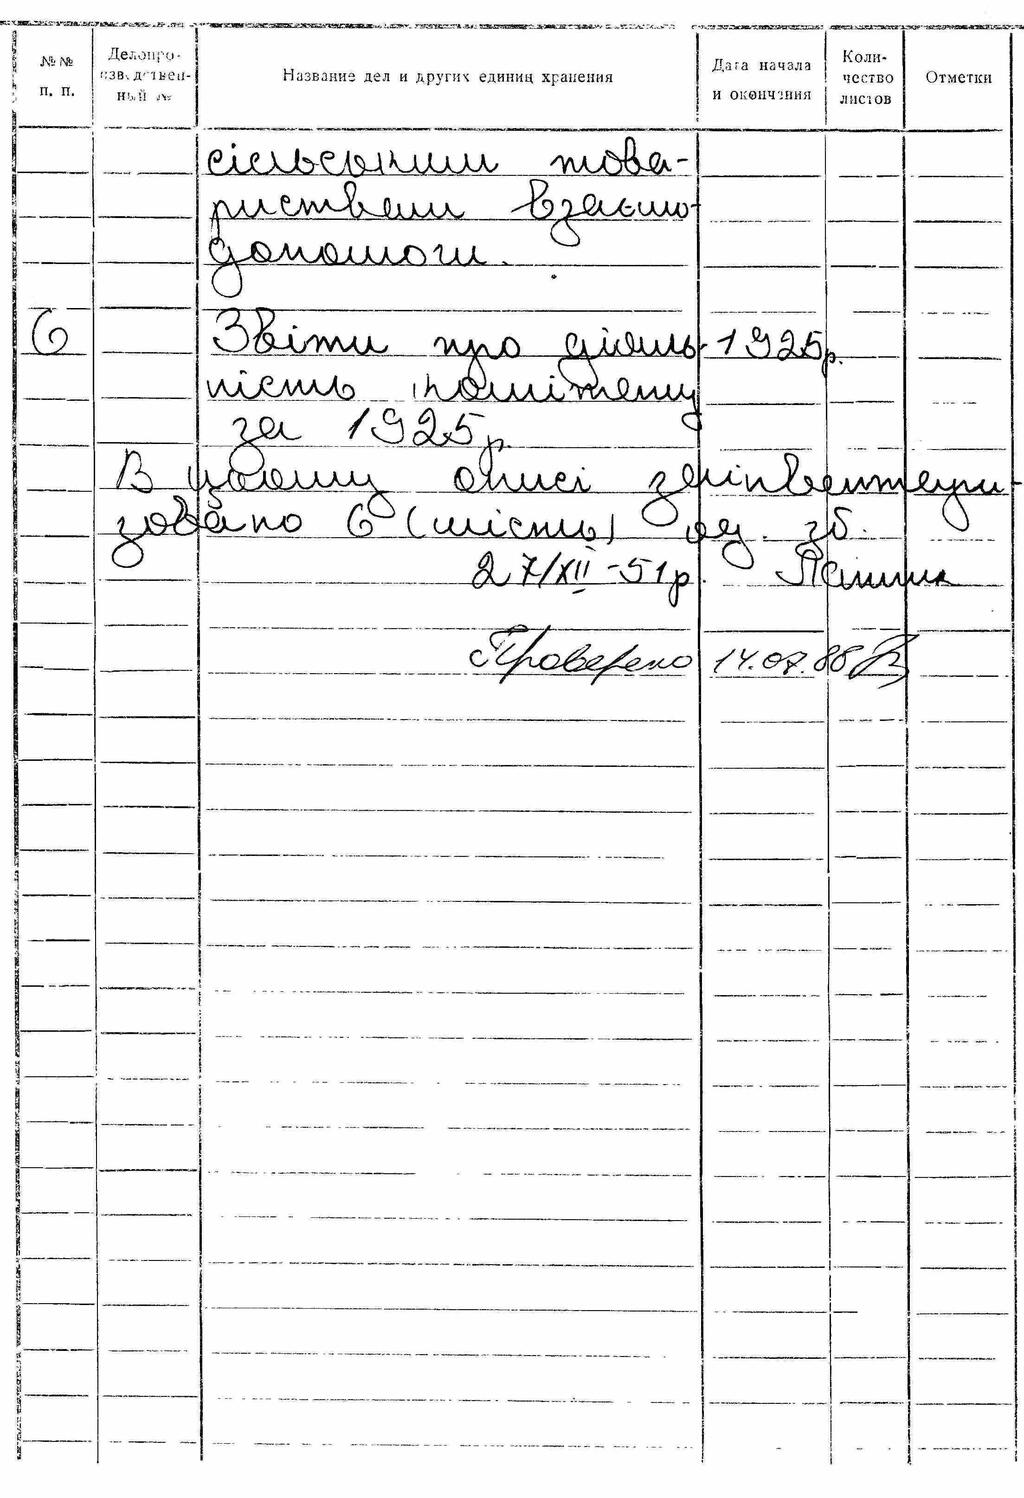 №№ п. п.
Делопроизводственный №
Название дел и других единиц хранения
Дата начала и окончания
Количество листов
Отметки
сільськими това-
риствами взаємо-
допомоги.
6 Звіти про діяль- 1925р.
ність комітету
за 1925р.
В цьому описі заінвентери-
зовано 6 (шість) од. зб.
27/XII-51р.
Проверено 14.07.88